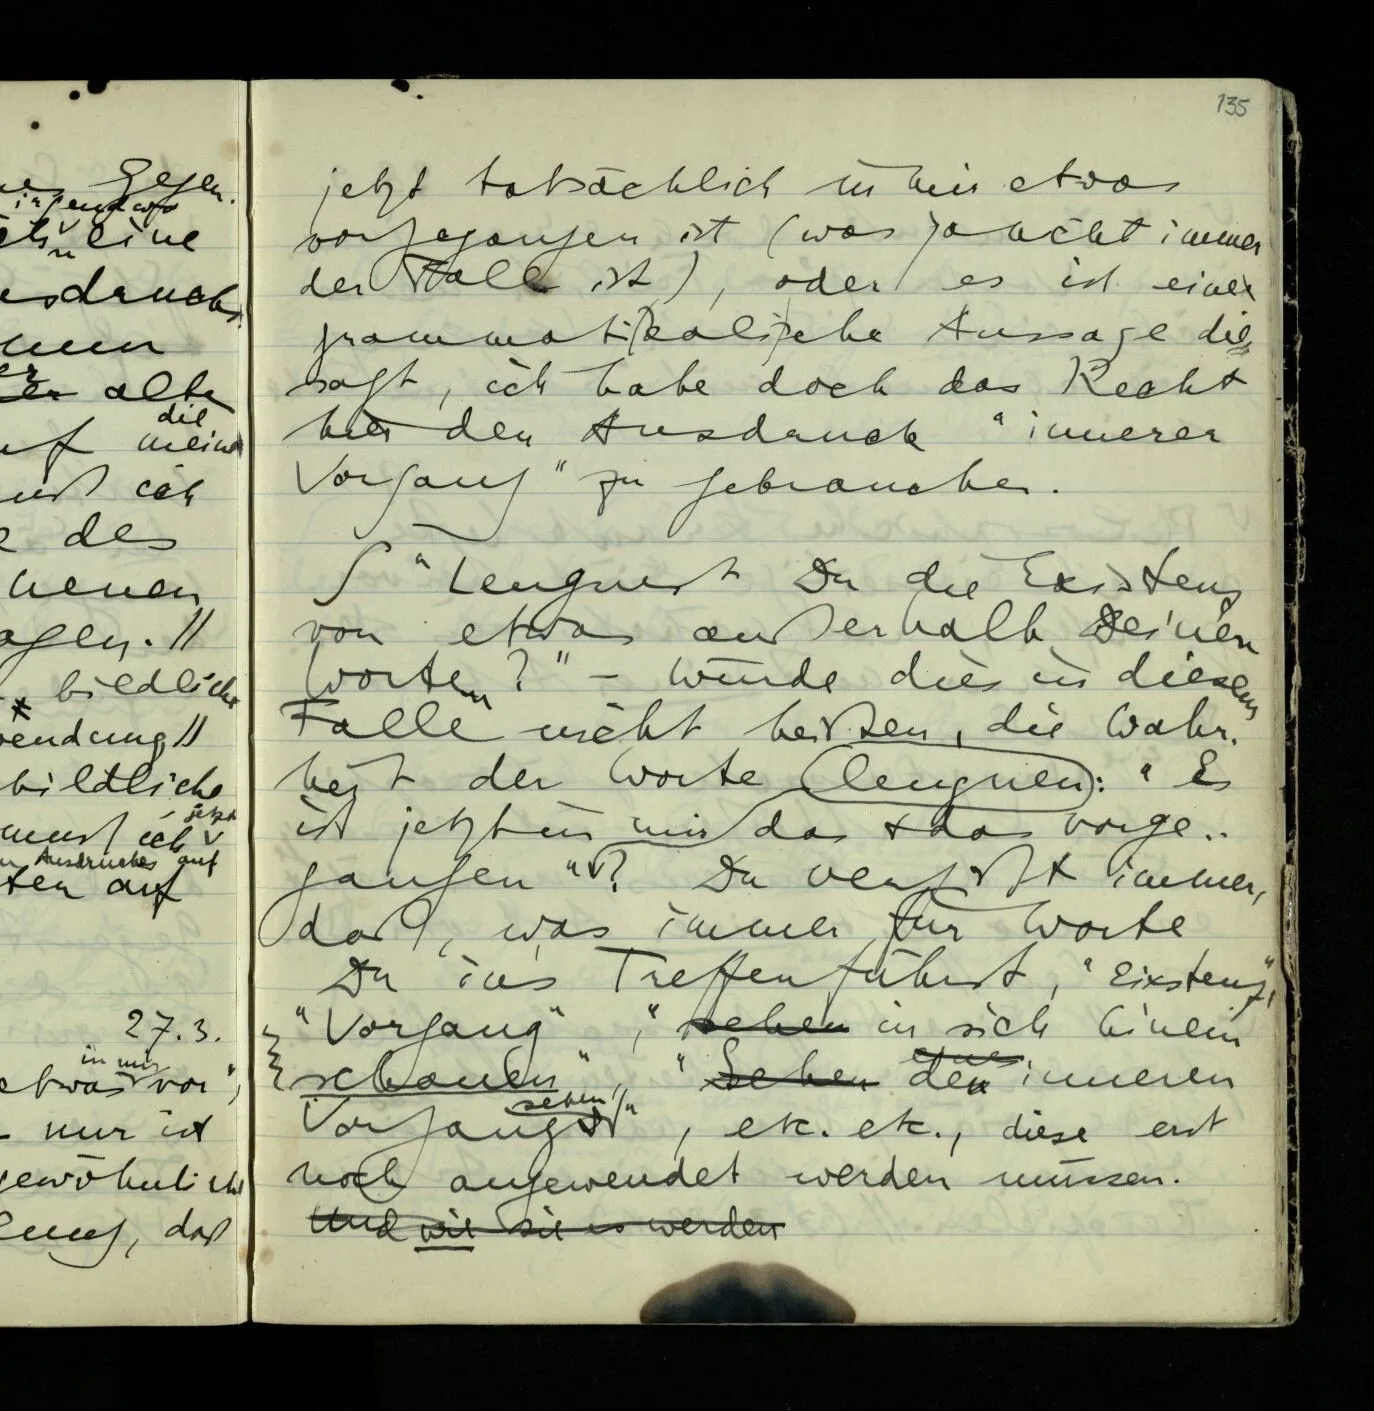 Gegen
irgendwo
eine
Ausdrucks
alte
die
meine
ich
des
nenen
bildliche
wendung //
bildliche
jetzt
musst ich
Ausdruckes auf
auf
27.3.
in mir
etwas vor",
nur ist
gewöhnliche
daß
135
jetzt tatsächlich in mir etwas
vorgegangen ist (was ja nicht immer
der Fall ist), oder es ist eine
grammatikalische Aussage die
sagt, ich habe doch das Recht
hier den Ausdruck "innerer
Vorgang" zu gebrauchen.
∫ "Leugnest Du die Existenz
von etwas außerhalb Deinen
Worten?" – würde dies in diesem
Falle nicht heißen, die Wahr-
heit der Worte leugnen: "Es
ist jetzt in mir das & das vorge-
gangen"? Du vergißt immer,
daß, was immer für Worte
Du ins Treffen führst, "Existenz",
"Vorgang", "sehen in sich hinein
schauen", "Sehen den eines inneren
Vorgangs sehen", etc. etc., diese erst
noch angewendet werden müssen.
Und wie sie es werden